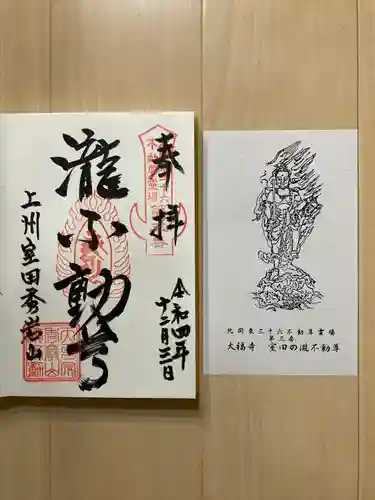 奉拝
令和四年
十二月三日
瀧不動尊
上州室田秀岩山
北関東三十六不動尊霊場
第三番
大福寺 室田の滝不動尊